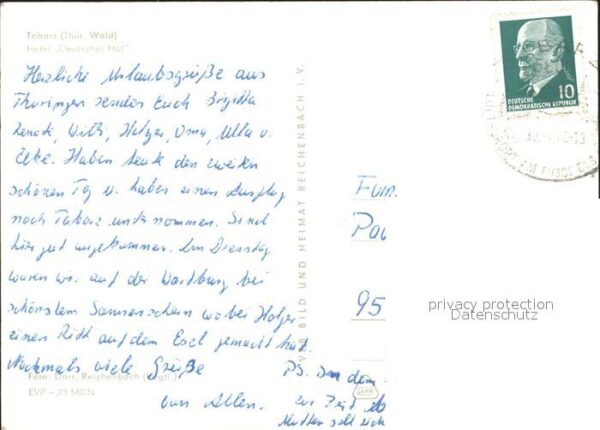 Tabarz (Thür. Wald)
Hotel „Deutscher Hof"
Herzliche Urlaubsgrüße aus
Thüringen senden Euch Brigitta
Renate, Willi, Holger, Oma, Ulla u.
Elke. Haben heute den zweiten
schönen Tag u. haben einen Ausflug
nach Tabarz unternommen. Sind
hier gut angekommen. Am Dienstag
waren wir auf der Wartburg bei
schönstem Sonnenschein wo bei Holger
einen Ritt auf dem Esel gemacht hat.
Nochmals viele Grüße
von Allen.
PS. In dem
zur Zeit
Foto: Darr, Reichenbach (Vogtl.)
EVP -,25 MDN
VEB BILD UND HEIMAT REICHENBACH I. V.
Fam.
95
10
DEUTSCHE
DEMOKRATISCHE REPUBLIK
privacy protection
Datenschutz